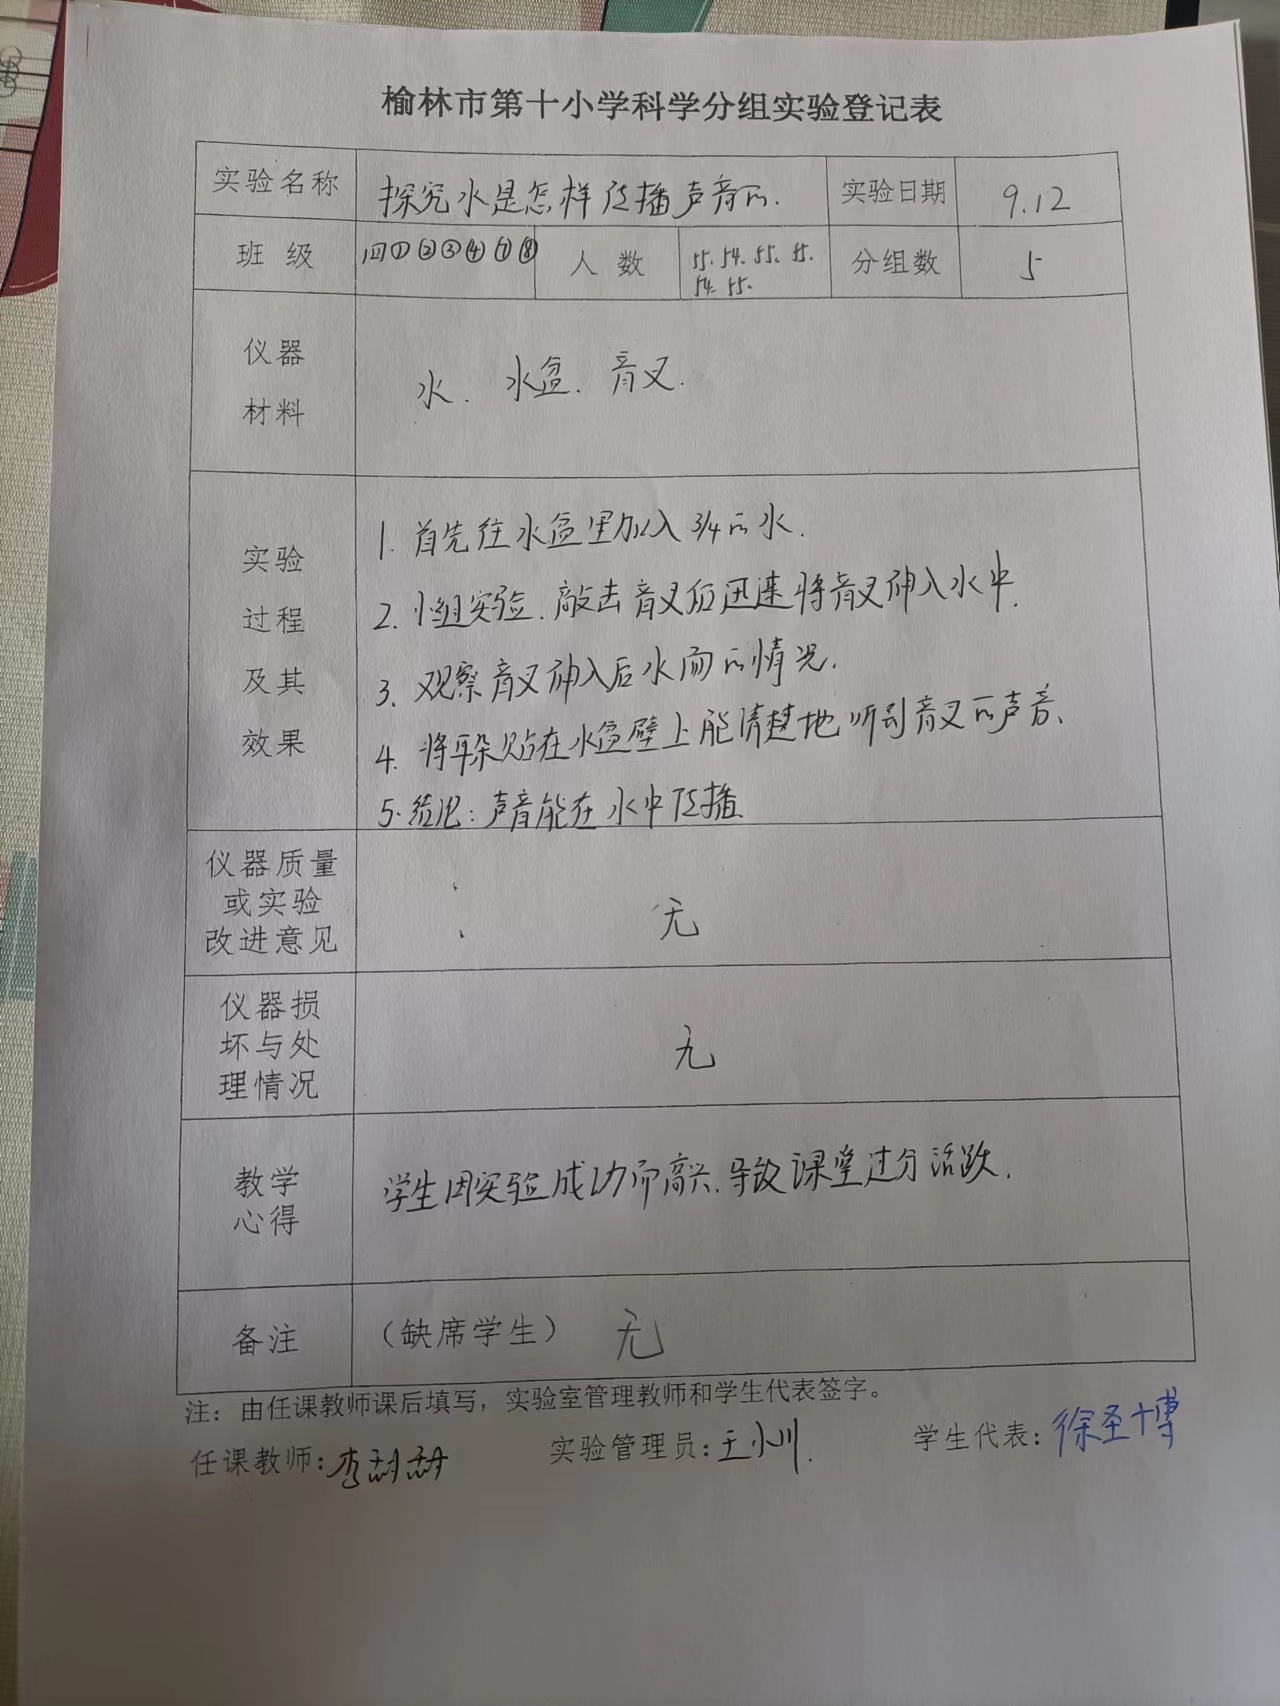 榆林市第十小学科学分组实验登记表
实验名称 探究水是怎样传播声音的. 实验日期 9.12
班 级 四①②③④⑦⑧ 人 数 55. 54. 55. 55. 分组数 5
54. 55.
仪器
材料
水. 水盆. 音叉.
实验
过程
及其
效果
1. 首先往水盆里加入3/4的水.
2. 小组实验. 敲击音叉后迅速将音叉伸入水中.
3. 观察音叉伸入后水面的情况.
4. 将耳朵贴在水盆壁上能清楚地听到音叉的声音、
5. 结论: 声音能在水中传播
仪器质量
或实验
改进意见
无
仪器损
坏与处
理情况
无
教学
心得
学生因实验成功而高兴. 导致课堂过分活跃.
备注 （缺席学生） 无
注：由任课教师课后填写，实验室管理教师和学生代表签字。
任课教师: 李 实验管理员: 王小川. 学生代表: 徐圣博